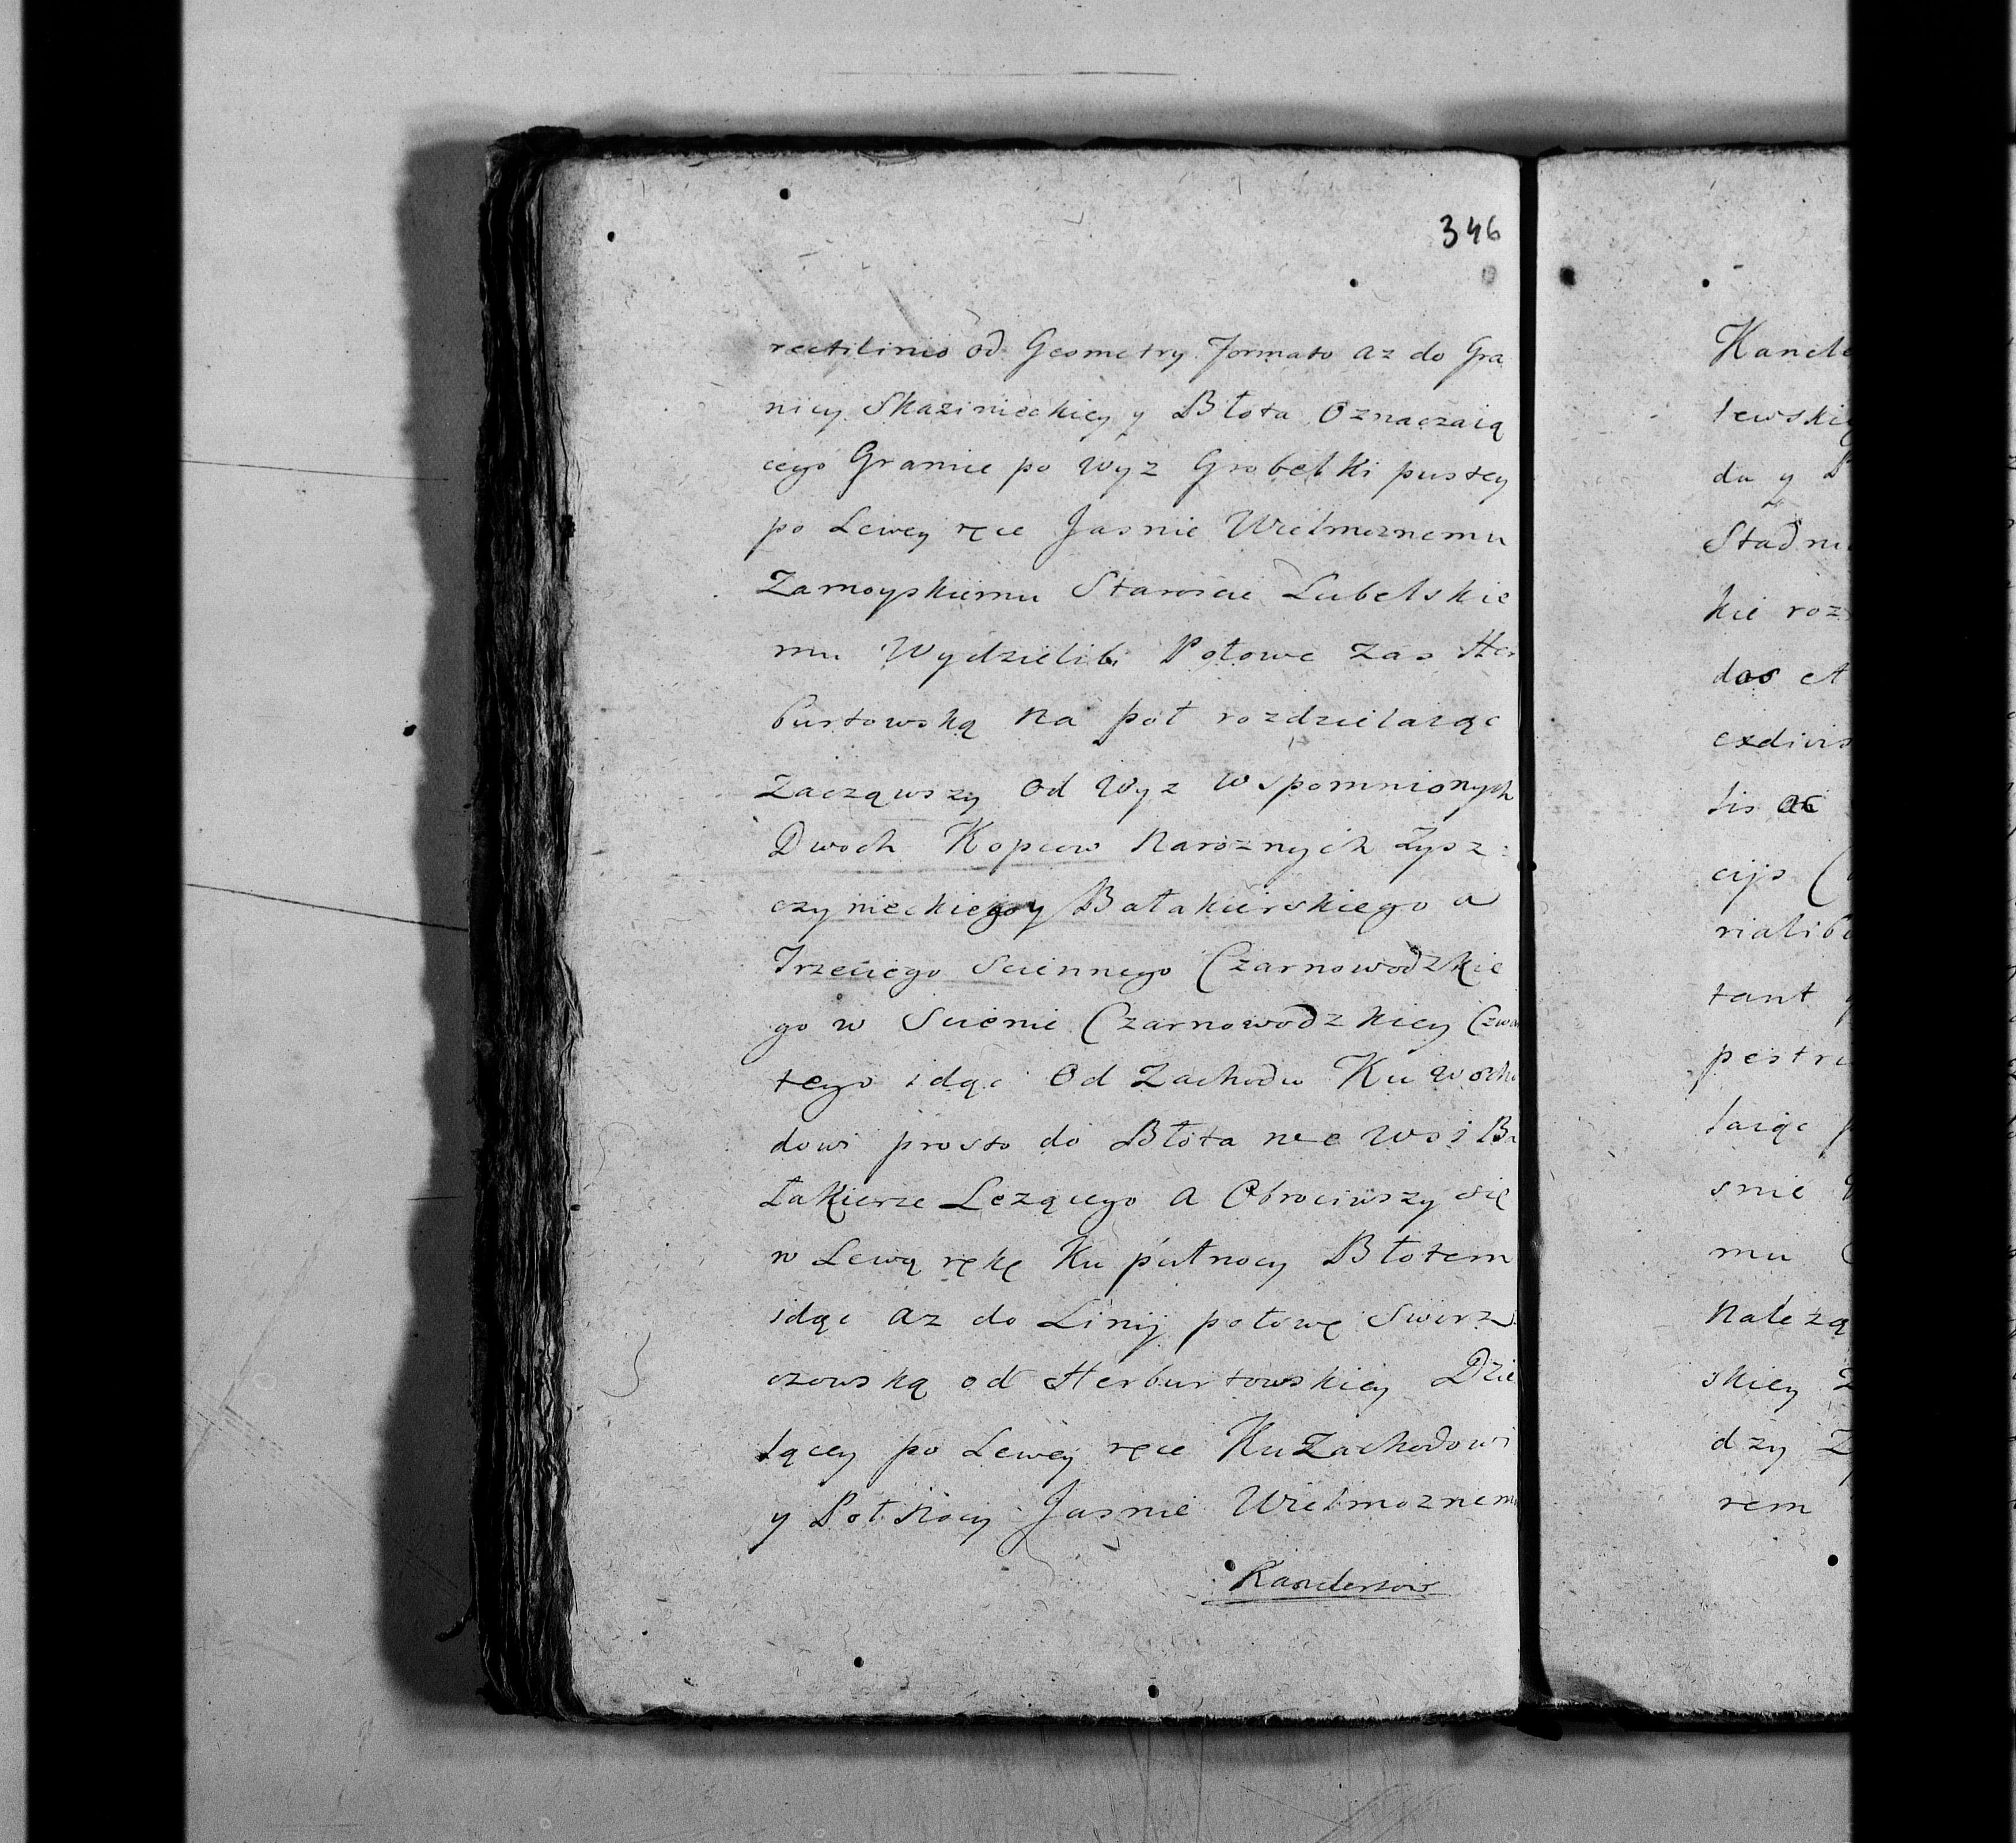 346
rectilineo od Geometry formato az do Gra
nicy Skazinieckiey y Błota Oznaczaią
cego Granie po wyz Grobelki pustey
po Lewey ręce Jasnie Wielmoznemu
Zamoyskiemu Staroscie Lubelskie
mu Wydzielili Połowe zas Her
burtowską na poł rozdzielaiąc
Zacząwszy od Wyz wspomnionych
Dwoch Kopcow Naroznych Łysz:
czynieckiego y Bałakierskiego a
Trzeciego Sciennego Czarnowodzkie
go w Scienie Czarnowodzkiey Czwar
tego idąc Od Zachodu Ku wscho
dowi prosto do Błota we Wsi Ba
łakierze Lezącego a Obrociwszy się
w Lewą rękę Ku pułnocy Błotem
idąc az do Linij połowę Swirz
czowską od Herburtowskiey Dzie
lącey po Lewey ręce Ku Zachodowi
y Poł Nocy Jasnie Wielmoznemu
Kande
lewskie
du y
Stadni
kie roz
dos et
exdivis
tis ac
cijs
rialibu
tant
pestri
laiąc
snie
mu
Nalezą
skiey
dzy
rem